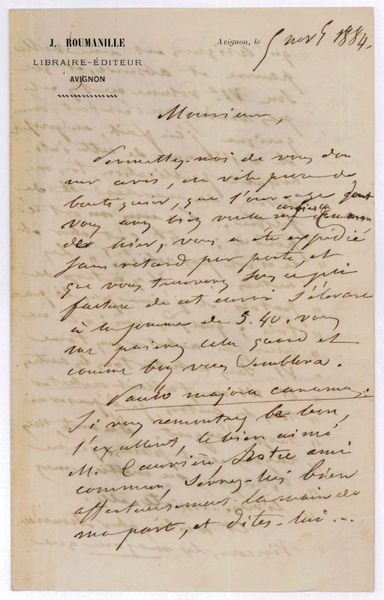 J. ROUMANILLE
LIBRAIRE-ÉDITEUR
AVIGNON
Avignon, le 5 1884.
Monsieur,
Permettez-moi de vous don
ner avis, en vile prose de
boutiquier, que l'ouvrage dont
vous avez bien voulu me
hier, vous a été expédié
sans retard par poste, et
que vous trouverez sous ce pli
facture de cet envoi s'élevant
à la somme de 5.40. vous
me paierez cela quand et
comme bon vous semblera.
Paulo majora canamus.
Si vous rencontrez le bon,
l'excellent, le bien aimé
M. notre ami
commun, serrez-lui bien
affectueusement la main de
ma part, et dites-lui ...